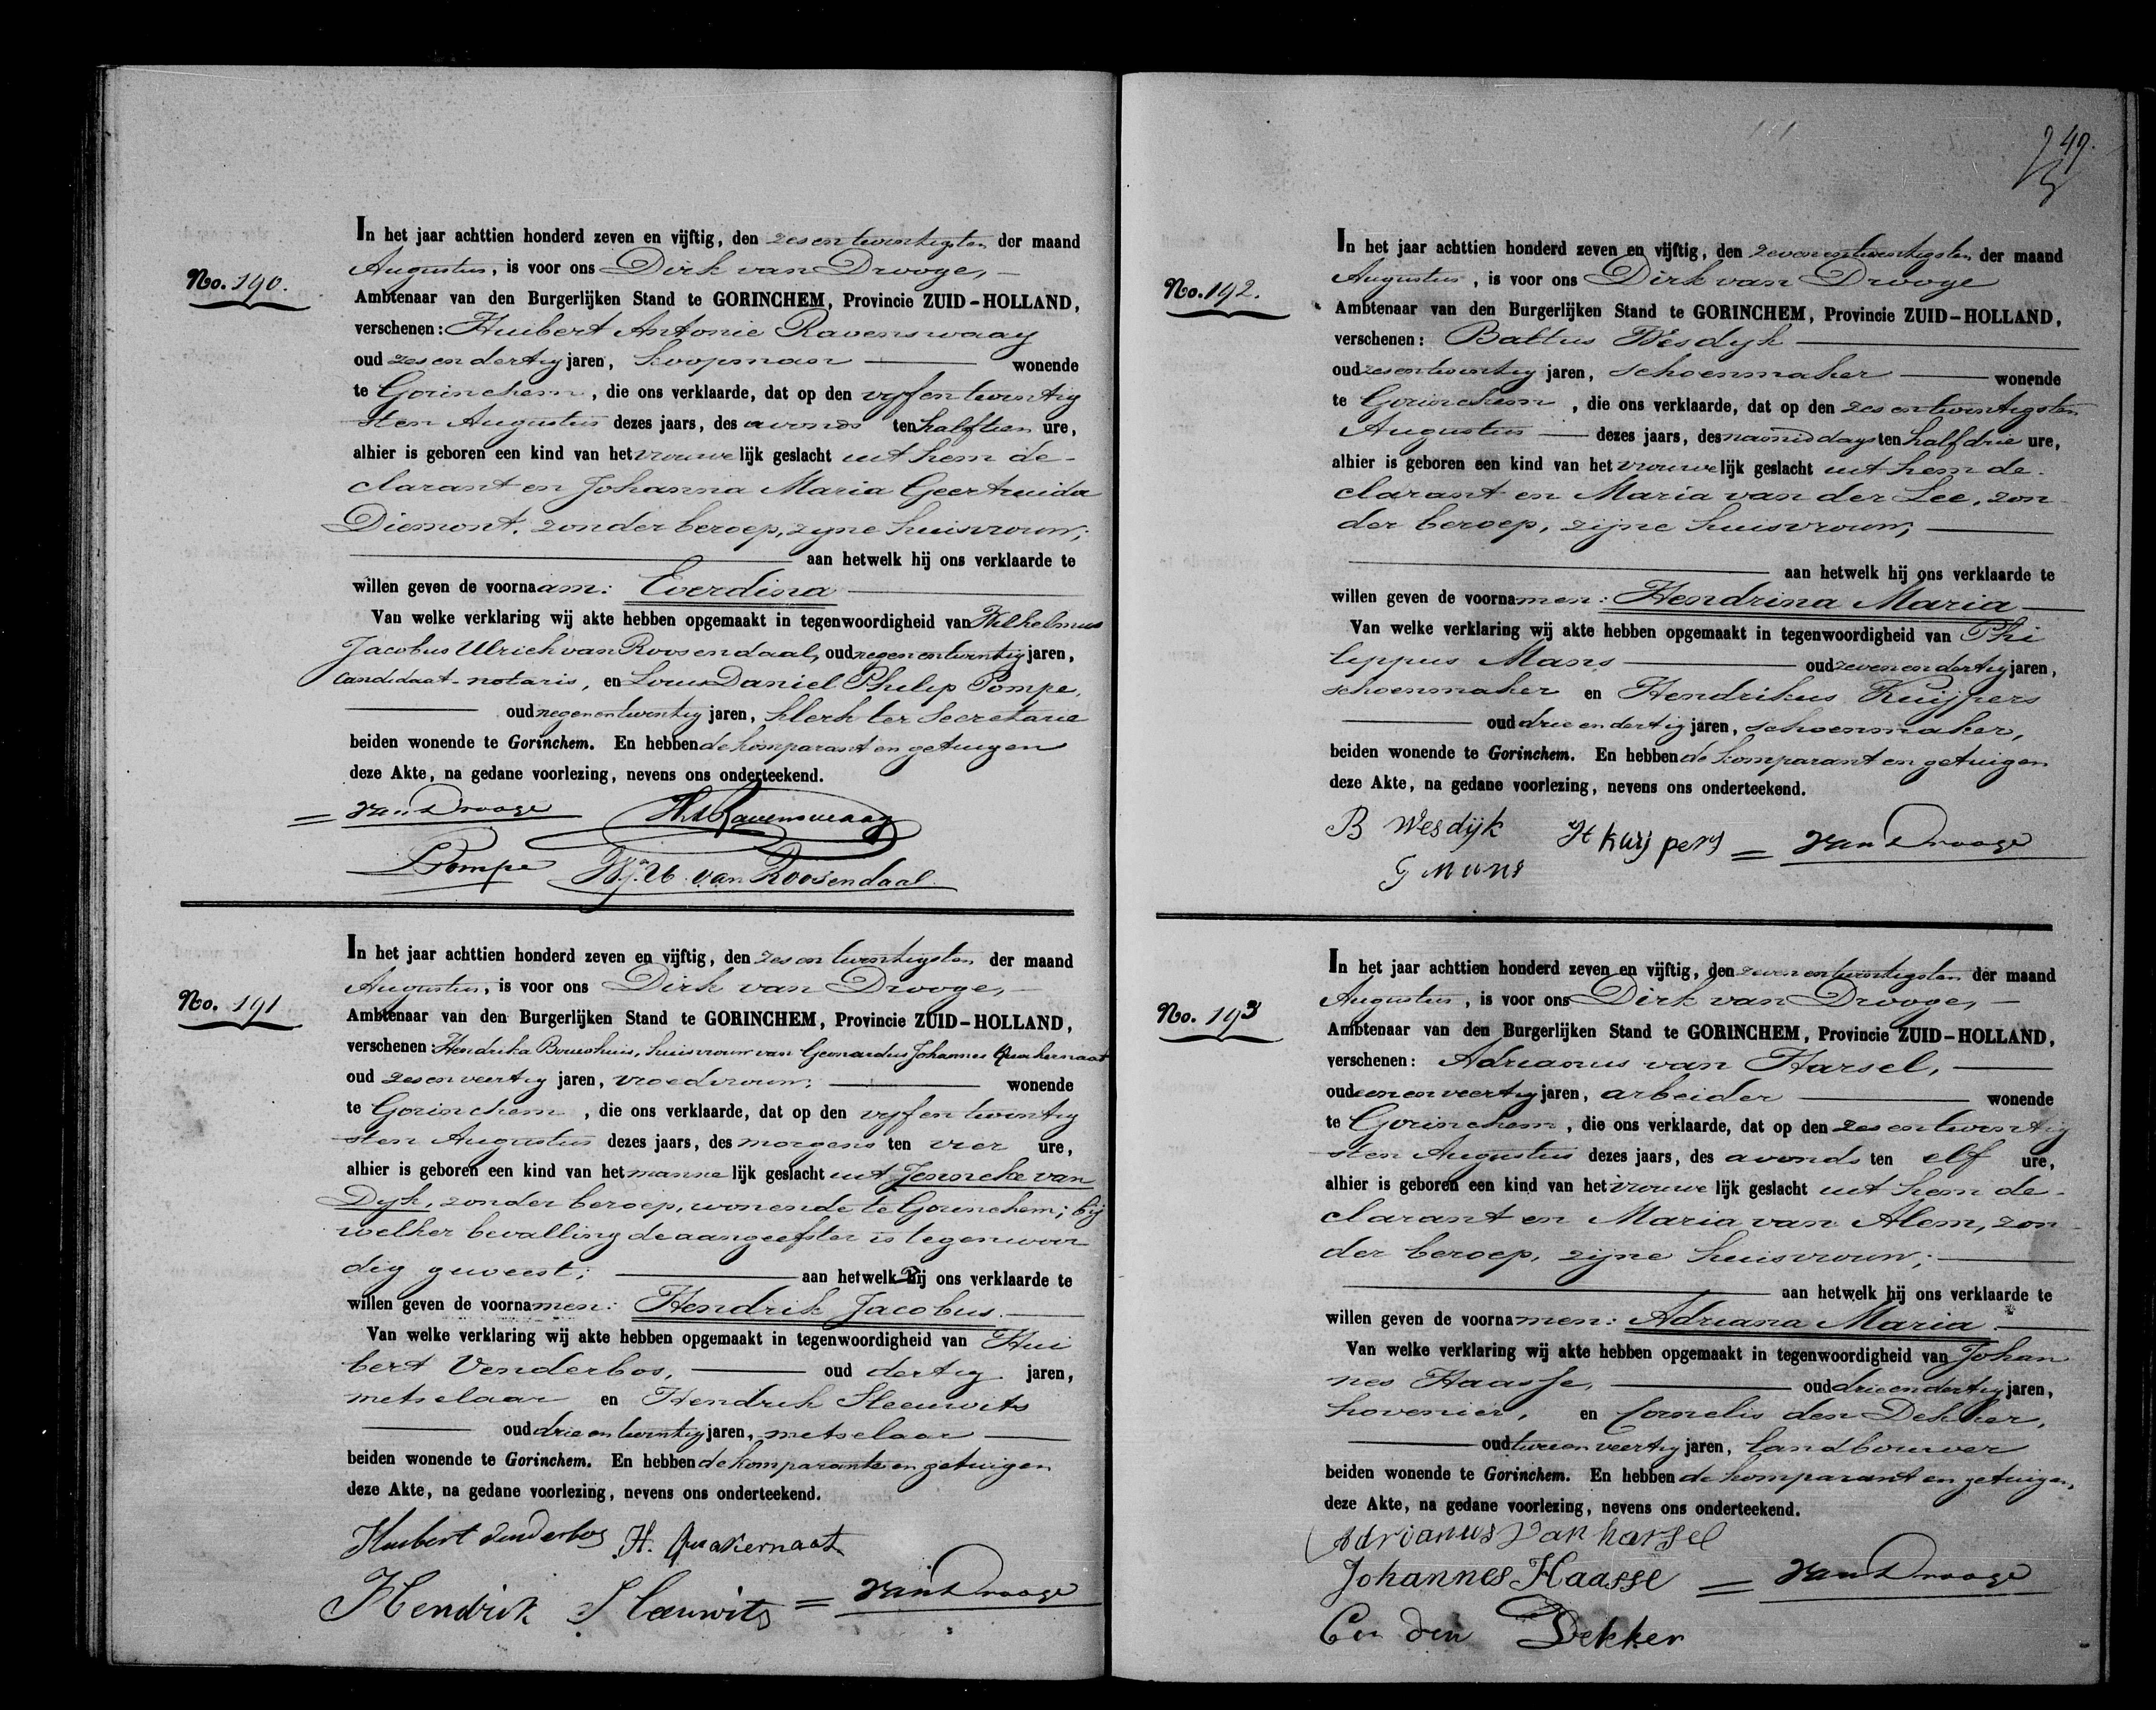 No. 190.
In het jaar achttien honderd zeven en vijftig, den zes en twintigsten der maand
Augustus, is voor ons Dirk van Drooge,
Ambtenaar van den Burgerlijken Stand te GORINCHEM, Provincie ZUID-HOLLAND,
verschenen: Huibert Antonie Ravenswaay
oud zes en dertig jaren, koopman wonende
te Gorinchem, die ons verklaarde, dat op den vijf en twintig
sten Augustus dezes jaars, des avonds ten half tien ure,
alhier is geboren een kind van het vrouwelijk geslacht uit hem de-
clarant en Johanna Maria Geertruida
Diemont, zonder beroep, zijne huisvrouw;
aan hetwelk hij ons verklaarde te
willen geven de voornaam: Everdina
Van welke verklaring wij akte hebben opgemaakt in tegenwoordigheid van Wilhelmus
Jacobus Ulrich van Roosendaal, oud negen en twintig jaren,
Candidaat-notaris, en Louis Daniel Philip Pompe,
oud negen en twintig jaren, klerk ter Secretarie
beiden wonende te Gorinchem. En hebben de komparant en getuigen
deze Akte, na gedane voorlezing, nevens ons onderteekend.
van Drooge HA Ravenswaay
LPompe WJ. U. van Roosendaal
No. 191
In het jaar achttien honderd zeven en vijftig, den zes en twintigsten der maand
Augustus, is voor ons Dirk van Drooge,
Ambtenaar van den Burgerlijken Stand te GORINCHEM, Provincie ZUID-HOLLAND,
verschenen: Hendrika Bouwhuis, huisvrouw van Johannes Quakernaat
oud zes en veertig jaren, vroedvrouw, wonende
te Gorinchem, die ons verklaarde, dat op den vijf en twintig
sten Augustus dezes jaars, des morgens ten vier ure,
alhier is geboren een kind van het mannelijk geslacht uit Jenneke van
Dijk, zonder beroep, wonende te Gorinchem; bij
welker bevalling de aangeefster is tegenwoor
dig geweest; aan hetwelk zij ons verklaarde te
willen geven de voornamen: Hendrik Jacobus.
Van welke verklaring wij akte hebben opgemaakt in tegenwoordigheid van Hui
bert Venderbos, oud dertig jaren,
metselaar en Hendrik Sleeuwits
oud drie en twintig jaren, metselaar
beiden wonende te Gorinchem. En hebben de komparante en getuigen
deze Akte, na gedane voorlezing, nevens ons onderteekend.
Huibert Venderbos H. Quakernaat
Hendrik Sleuwits van Drooge
49.
No. 192.
In het jaar achttien honderd zeven en vijftig, den zeven en twintigsten der maand
Augustus, is voor ons Dirk van Drooge
Ambtenaar van den Burgerlijken Stand te GORINCHEM, Provincie ZUID-HOLLAND,
verschenen: Baltus Wesdijk
oud zes en twintig jaren, schoenmaker wonende
te Gorinchem, die ons verklaarde, dat op den zes en twintigsten
Augustus dezes jaars, des namiddags ten half drie ure,
alhier is geboren een kind van het vrouwelijk geslacht uit hem de-
clarant en Maria van der Lee, zon
der beroep, zijne huisvrouw,
aan hetwelk hij ons verklaarde te
willen geven de voornamen: Hendrina Maria
Van welke verklaring wij akte hebben opgemaakt in tegenwoordigheid van Phi
lippus Mans oud zeven en dertig jaren,
schoenmaker en Hendrikus Kuijpers
oud drie en dertig jaren, schoenmaker,
beiden wonende te Gorinchem. En hebben de komparant en getuigen
deze Akte, na gedane voorlezing, nevens ons onderteekend.
B Wesdijk H Kuijpers van Drooge
Mans
No. 193
In het jaar achttien honderd zeven en vijftig, den zeven en twintigsten der maand
Augustus, is voor ons Dirk van Drooge,
Ambtenaar van den Burgerlijken Stand te GORINCHEM, Provincie ZUID-HOLLAND,
verschenen: Adrianus van Harsel,
oud een en veertig jaren, arbeider wonende
te Gorinchem, die ons verklaarde, dat op den zes en twintig
sten Augustus dezes jaars, des avonds ten elf ure,
alhier is geboren een kind van het vrouwelijk geslacht uit hem de-
clarant en Maria van Alem, zon
der beroep, zijne huisvrouw;
aan hetwelk hij ons verklaarde te
willen geven de voornamen: Adriana Maria
Van welke verklaring wij akte hebben opgemaakt in tegenwoordigheid van Johan
nes Haasse, oud drie en dertig jaren,
hovenier, en Cornelis den Dekker,
oud twee en veertig jaren, landbouwer
beiden wonende te Gorinchem. En hebben de komparant en getuigen,
deze Akte, na gedane voorlezing, nevens ons onderteekend.
Adrianus van harsel
Johannes Haasse van Drooge
Cor den Dekker